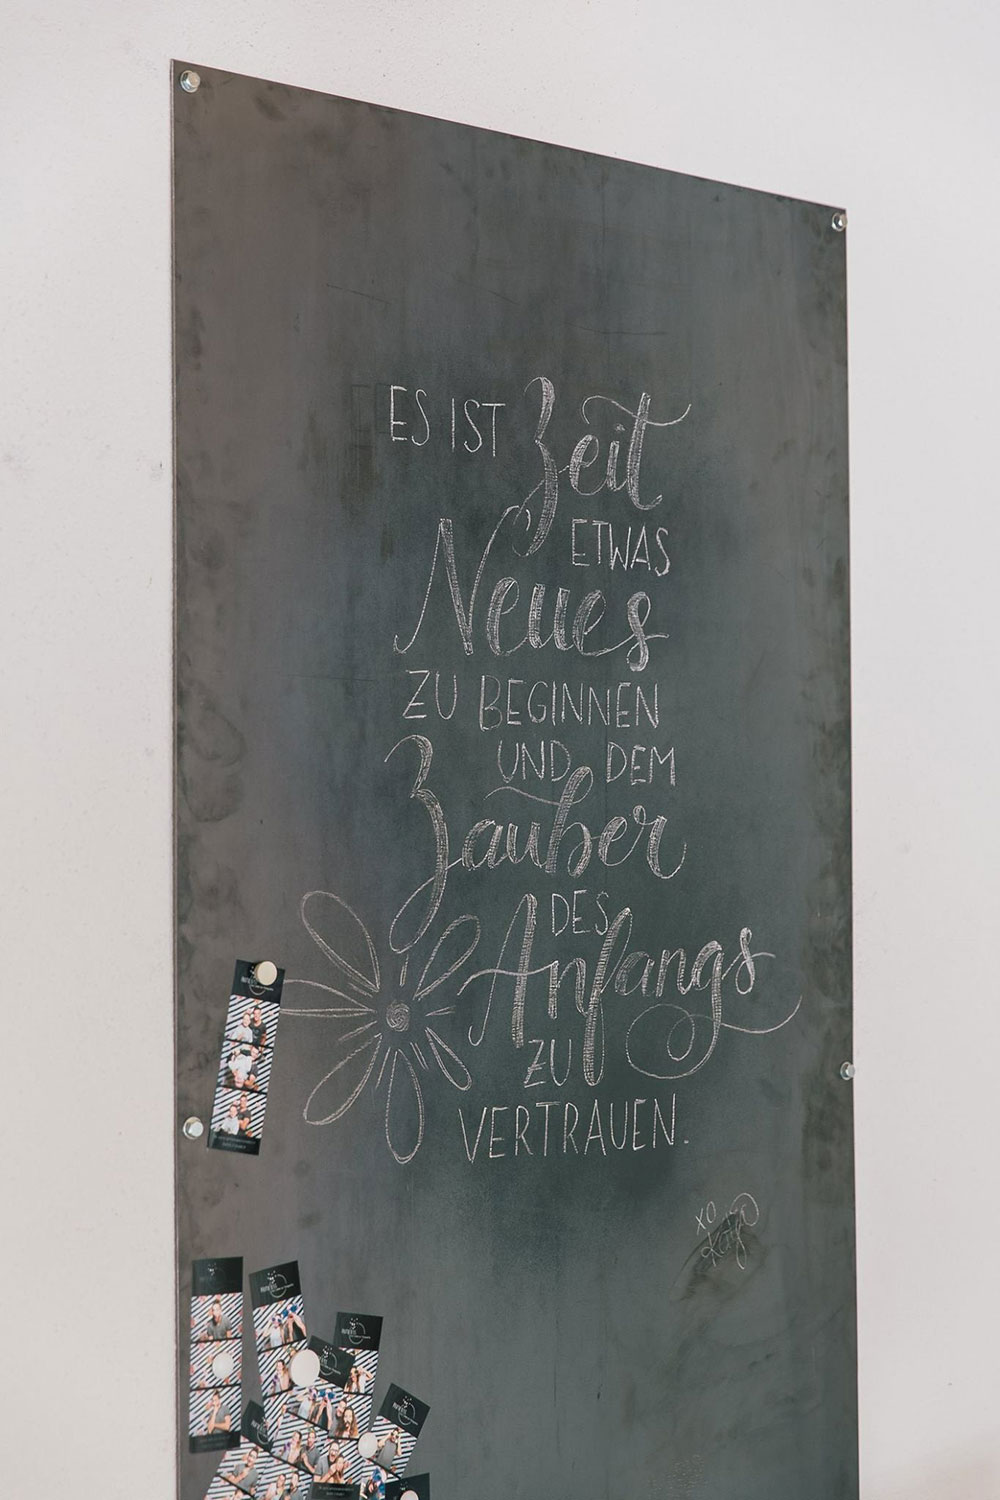 ES IST Zeit
ETWAS
Neues
ZU BEGINNEN
UND DEM
Zauber
DES
Anfangs
ZU
VERTRAUEN.
xo
Katja